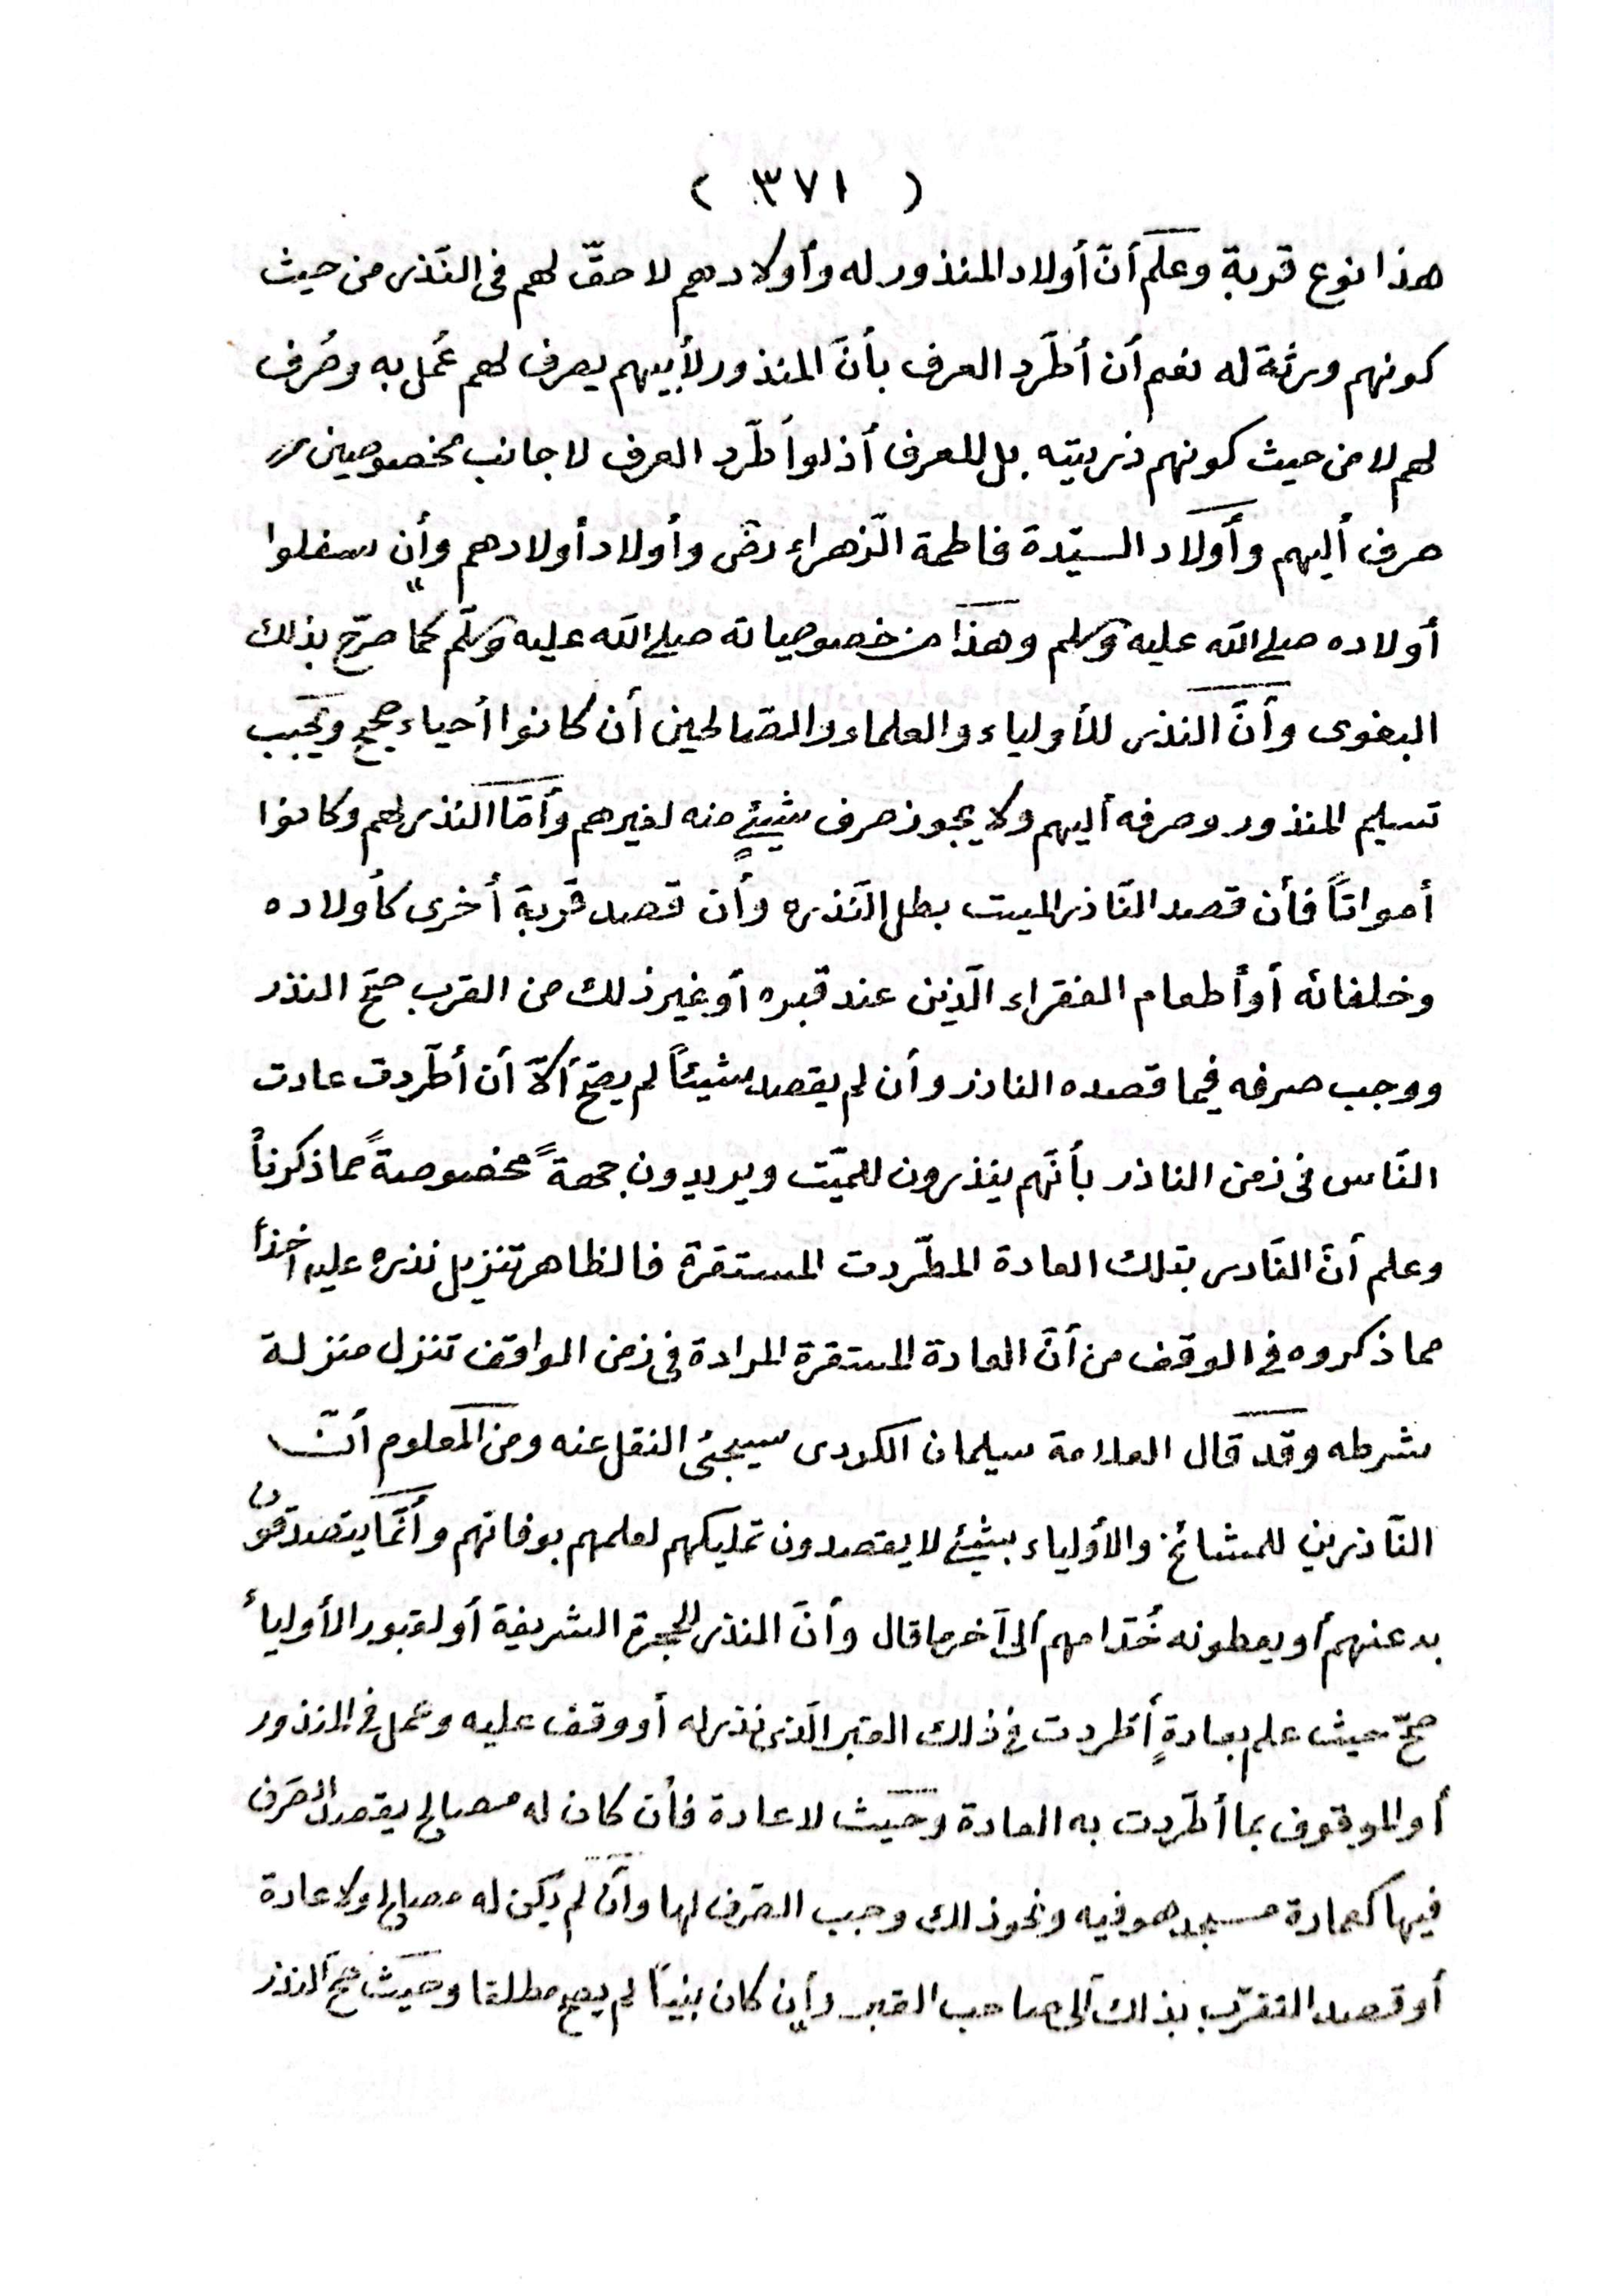 ( ٣٧١ )
هذا نوع قربة وعلم أنّ أولاد المنذور له وأولادهم لا حقّ لهم فى النّذر من حيث
كونهم ورثة له نعم أن أطّرد العرف بأنّ المنذور لأبيهم يصرف لهم عُمل به وصُرف
لهم لا من حيث كونهم ذريّته بل للعرف أذ لو أطّرد العرف لا جانب مخصوصين
صرف أليهم وأولاد السيّدة فاطمة الزّهراء رضى وأولاد أولادهم وإن سفلوا
أولاده صلى الله عليه وسلم وهذا من خصوصياته صلى الله عليه وسلّم كما صرّح بذلك
البغوى وأنّ النذر للأولياء والعلماء والصّالحين أن كانوا أحياء صحيح ويجب
تسليم المنذور وصرفه أليهم ولا يجوز صرف شيئٍ منه لغيرهم وأمّا النذر لهم وكانوا
أمواتاً فأن قصد النّاذر الميت بطل النّذره وأن قصد قربة أخرى كأولاده
وخلفائه أو أطعام الفقراء الّذين عند قبره أو غير ذلك من القرب صحّ النذر
ووجب صرفه فيما قصده الناذر وأن لم يقصد شيئاً لم يصحّ ألاّ أن أطّردت عادت
النّاس فى زمن الناذر بأنّهم ينذرون للميّت ويريدون جهةً مخصوصةً مما ذكرنا
وعلم أنّ النّادر بتلك العادة المطّردت المستقرة فالظاهر تنزيل نذره عليه اخذاً
مما ذكروه فى الوقف من أنّ العادة المستقرة المرادة فى زمن الواقف تنزل منزلة
شرطه وقد قال العلامة سيلمان الكردى سيجئ النقل عنه ومن المعلوم أنّ
النّاذرين للمشائخ والأولياء بشيئ لا يقصدون تمليكهم لعلمهم بوفاتهم وأنّما يتصدقون
به عنهم أو يعطونه خُدّامهم ألى آخر ما قال وأنّ النذر للحجرة الشريفة أو لقبور الأولياء
صحّ حيث علم بعادةٍ أطردت فى ذلك القبر الّذى نذر له أو وقف عليه وعمل فى المنذور
أو الموقوف بما أطّردت به العادة وحيث لا عادة فأن كان له مصالح يقصد الصّرف
فيها كعمارة مسجد هو فيه ونحو ذلك وجب الصّرف لها وأن لم يكن له مصالح ولا عادة
أو قصد التقرّب بذلك ألى صاحب القبر وإن كان بنياً لم يصح مطلقا وحيث صحّ النذر